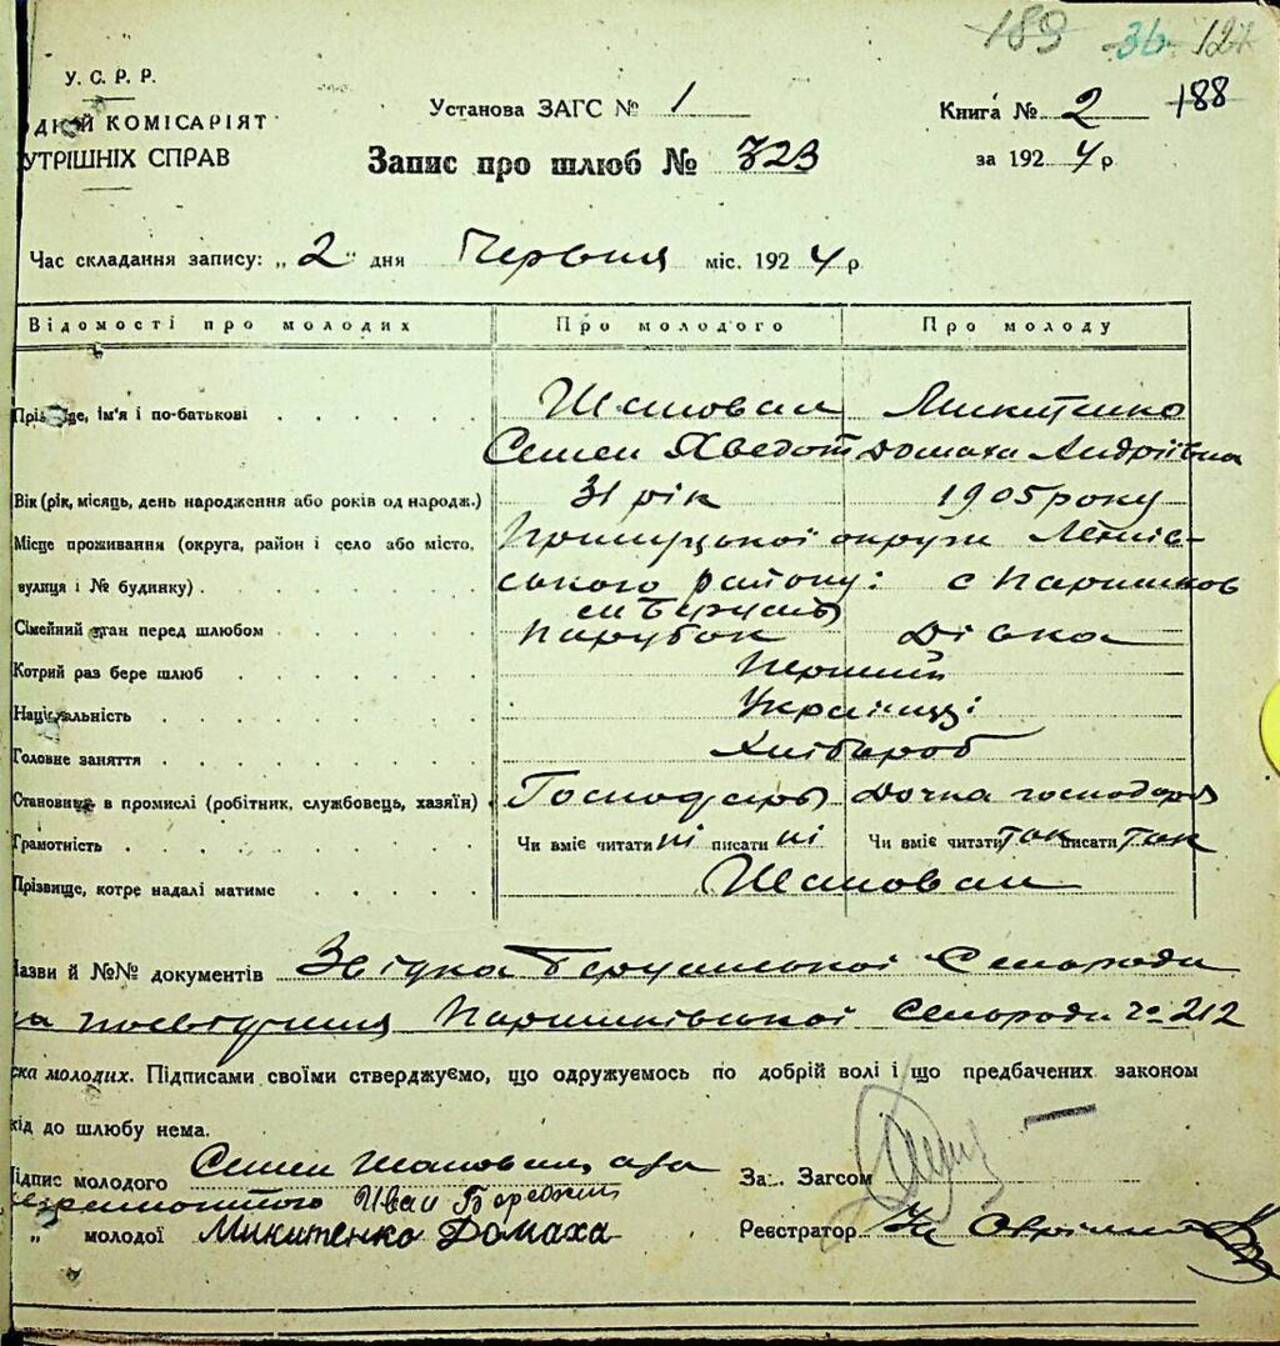 189 36 127
У. С. Р. Р.
Установа ЗАГС № 1
Книга № 2 188
КОМІСАРІЯТ
УТРІШНІХ СПРАВ
Запис про шлюб № 323
за 1924 р.
Час складання запису: „2" дня Червня міс. 1924 р.
Відомості про молодих Про молодого Про молоду
ім'я і по-батькові Шаповал Микитенко
Семен Хведот Домаха Андріївна
Вік (рік, місяць, день народження або років од народж.) 31 рік 1905 року
Місце проживання (округа, район і село або місто, Прилуцької округи
вулиця і № будинку) ського району: с
Сімейний стан перед шлюбом Парубок Дівка
Котрий раз бере шлюб Перший
Національність Українці
Головне заняття Хлібороб
Становище в промислі (робітник, службовець, хазяїн) Господарь Дочка господаря
Грамотність Чи вміє читати ні писати ні Чи вміє читати так писати так
Прізвище, котре надалі матиме Шаповал
Назви й №№ документів Звідка Сельради
посвідчення Сельради № 212
ска молодих. Підписами своїми стверджуємо, що одружуємось по добрій волі і що предбачених законом
до шлюбу нема.
Підпис молодого Семен Шаповал, а за
Іван Бережний
За.. Загсом
„ молодої Микитенко Домаха
Реєстратор